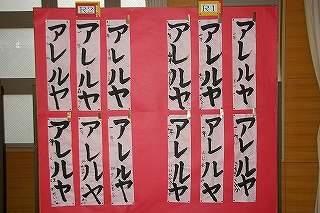 R2
R1
アレルヤ
アレルヤ
アレルヤ
アレルヤ
アレルヤ
アレルヤ
アレルヤ
アレルヤ
アレルヤ
アレルヤ
アレルヤ
アレルヤ